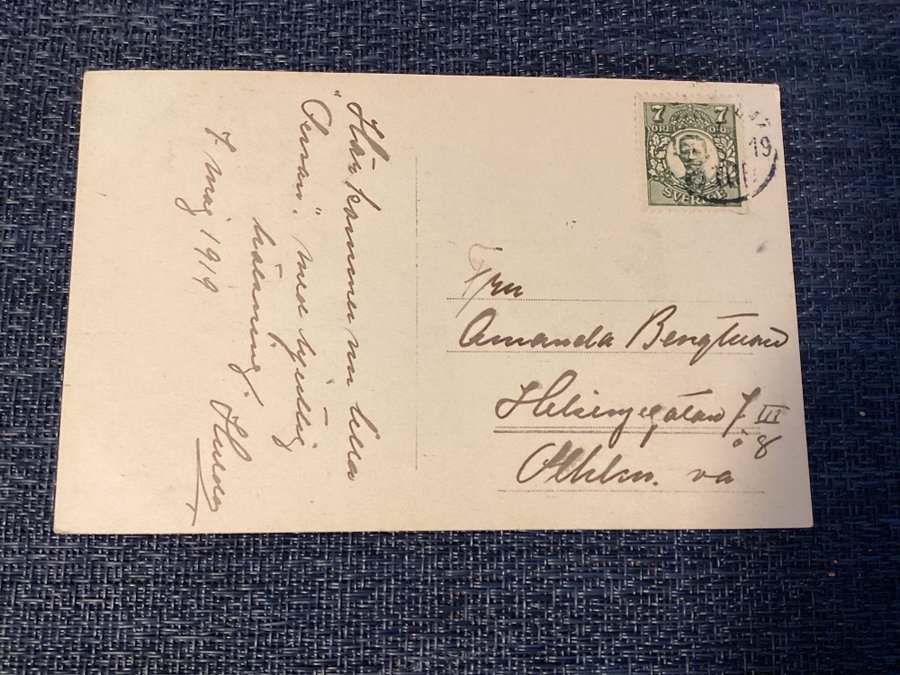 Här kommer nu lilla
" " med hjärtlig
hälsning.
Hulda
7 maj 1919
7 7
ÖRE
SVERIGE
19
Fru
Amanda Bengtsson
Helsingegatan
Sthlm. va